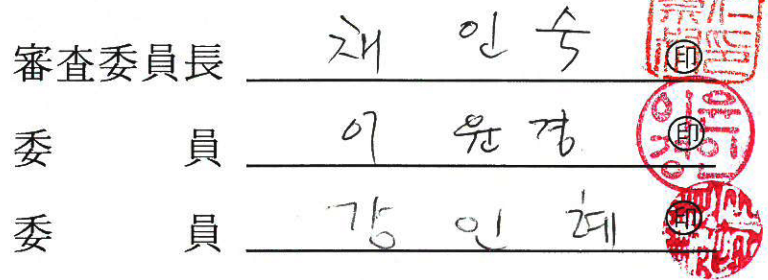 審査委員長 채 인 숙 ㊞
委 員 이 윤 경 ㊞
委 員 강 인 혜 ㊞